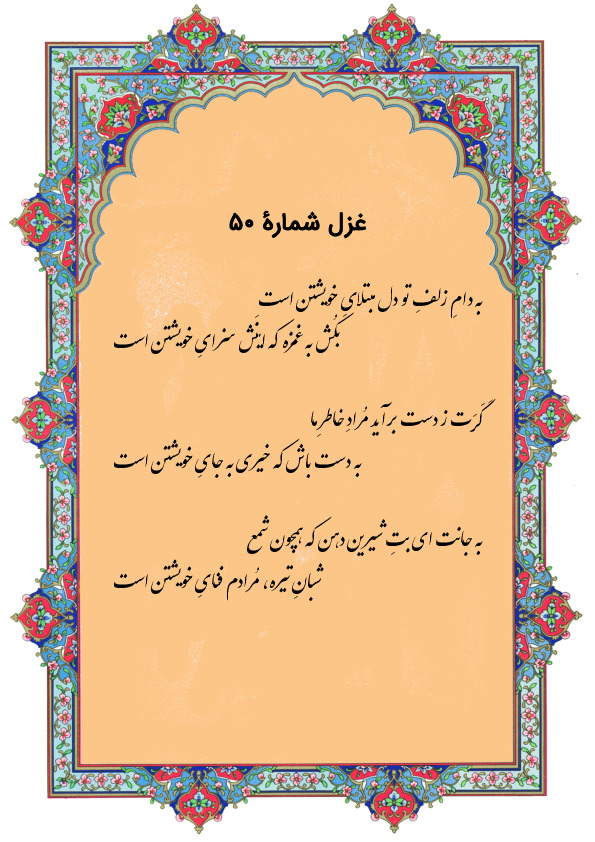 غزل شمارهٔ ۵۰
به دامِ زلفِ تو دل مبتلایِ خویشتن است
بِکُش به غمزه که اینَش سزایِ خویشتن است
گَرَت ز دست برآید مُرادِ خاطرِ ما
به دست باش که خیری به جایِ خویشتن است
به جانت ای بتِ شیرین دهن که همچون شمع
شبانِ تیره، مُرادم فنایِ خویشتن است